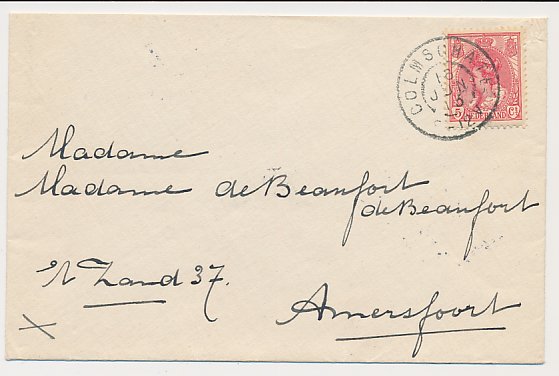 COLMSCHATE
5 Ct
NEDERLAND
Madame
Madame de Beaufort
de Beaufort
't Zand 37.
Amersfoort